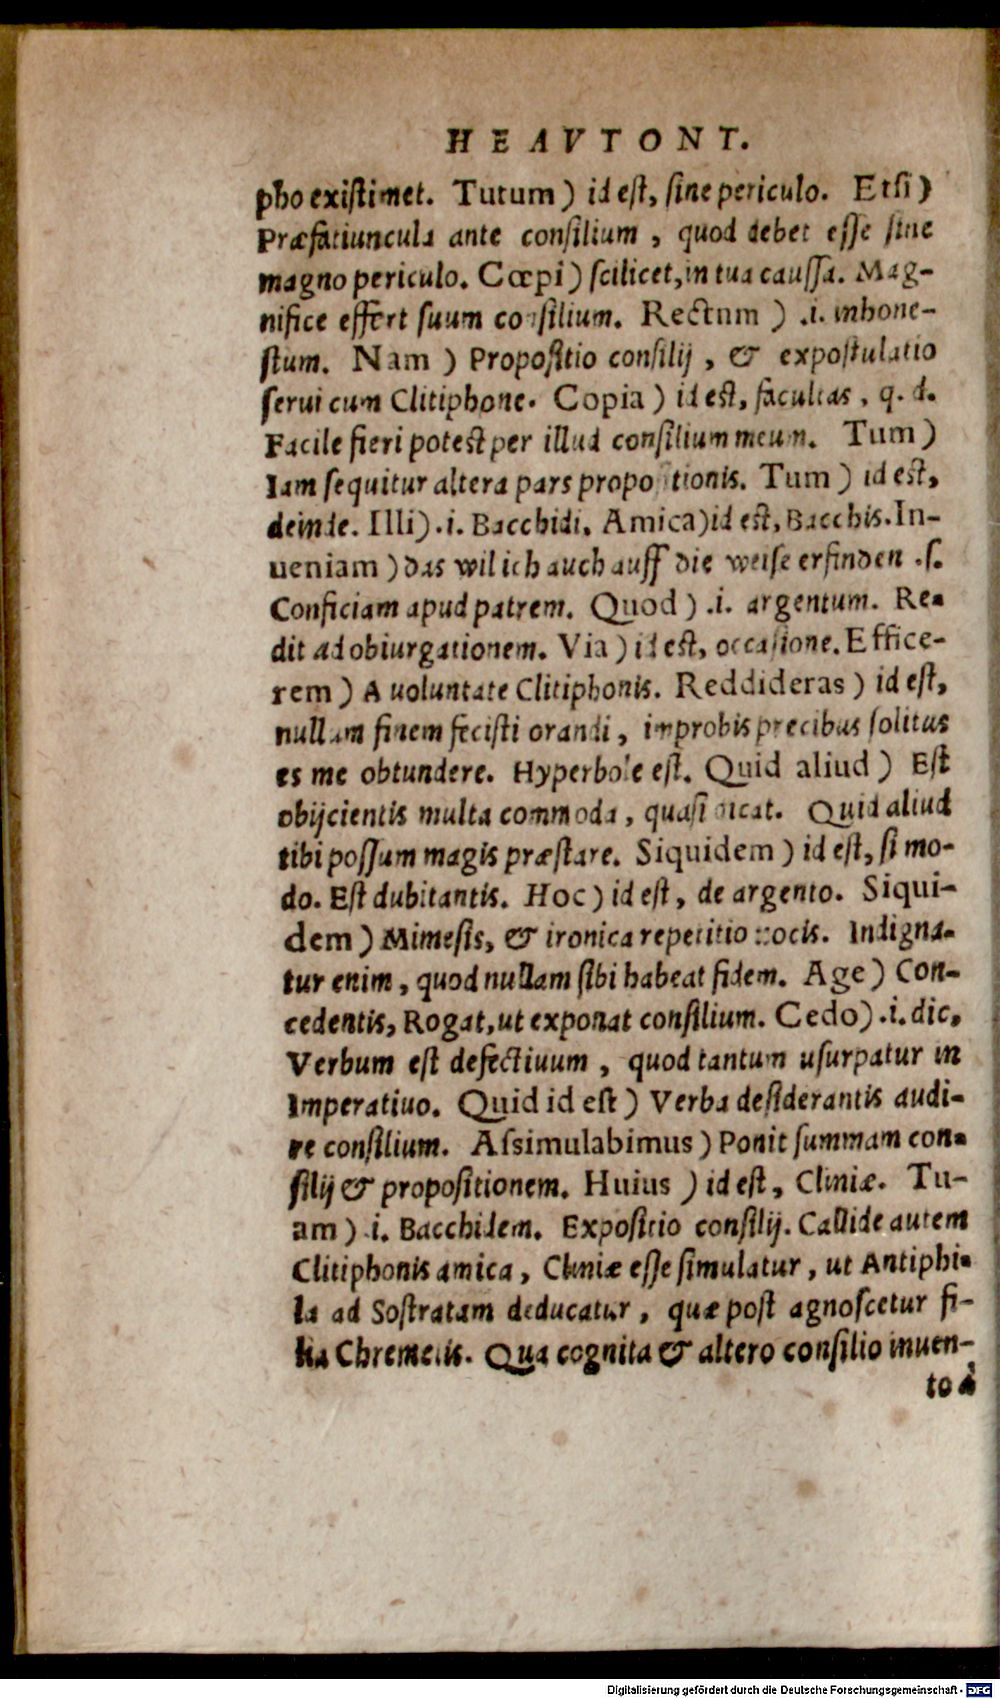 HEAVTONT.
pho existimet. Tutum) id est, sine periculo. Etsi)
Præfatiuncula ante consilium, quod debet esse sine
magno periculo. Cœpi) scilicet, in tua caussa. Mag-
nifice effert suum consilium. Rectum) .i. inhone-
stum. Nam) Propositio consilij, & expostulatio
serui cum Clitiphone. Copia) id est, facultas, q. d.
Facile fieri potest per illud consilium meum. Tum)
Iam sequitur altera pars propositionis. Tum) id est,
deinde. Illi) .i. Bacchidi. Amica) id est, Bacchis. In-
ueniam) das wil ich auch auff die weise erfinden .s.
Conficiam apud patrem. Quod) .i. argentum. Re-
dit ad obiurgationem. Via) id est, occasione. Effice-
rem) A uoluntate Clitiphonis. Reddideras) id est,
nullam finem fecisti orandi, improbis precibus solitus
es me obtundere. Hyperbole est. Quid aliud) Est
obijcientis multa commoda, quasi dicat. Quid aliud
tibi possum magis præstare. Siquidem) id est, si mo-
do. Est dubitantis. Hoc) id est, de argento. Siqui-
dem) Mimesis, & ironica repetitio uocis. Indigna-
tur enim, quod nullam sibi habeat fidem. Age) Con-
cedentis, Rogat, ut exponat consilium. Cedo) .i. dic,
Verbum est defectiuum, quod tantum usurpatur in
Imperatiuo. Quid id est) Verba desiderantis audi-
re consilium. Assimulabimus) Ponit summam con-
silij & propositionem. Huius) id est, Cliniæ. Tu-
am) .i. Bacchidem. Expositio consilij. Callide autem
Clitiphonis amica, Cliniæ esse simulatur, ut Antiphi-
la ad Sostratam deducatur, quæ post agnoscetur fi-
lia Chremetis. Qua cognita & altero consilio inuen-
to à
Digitalisierung gefördert durch die Deutsche Forschungsgemeinschaft - DFG